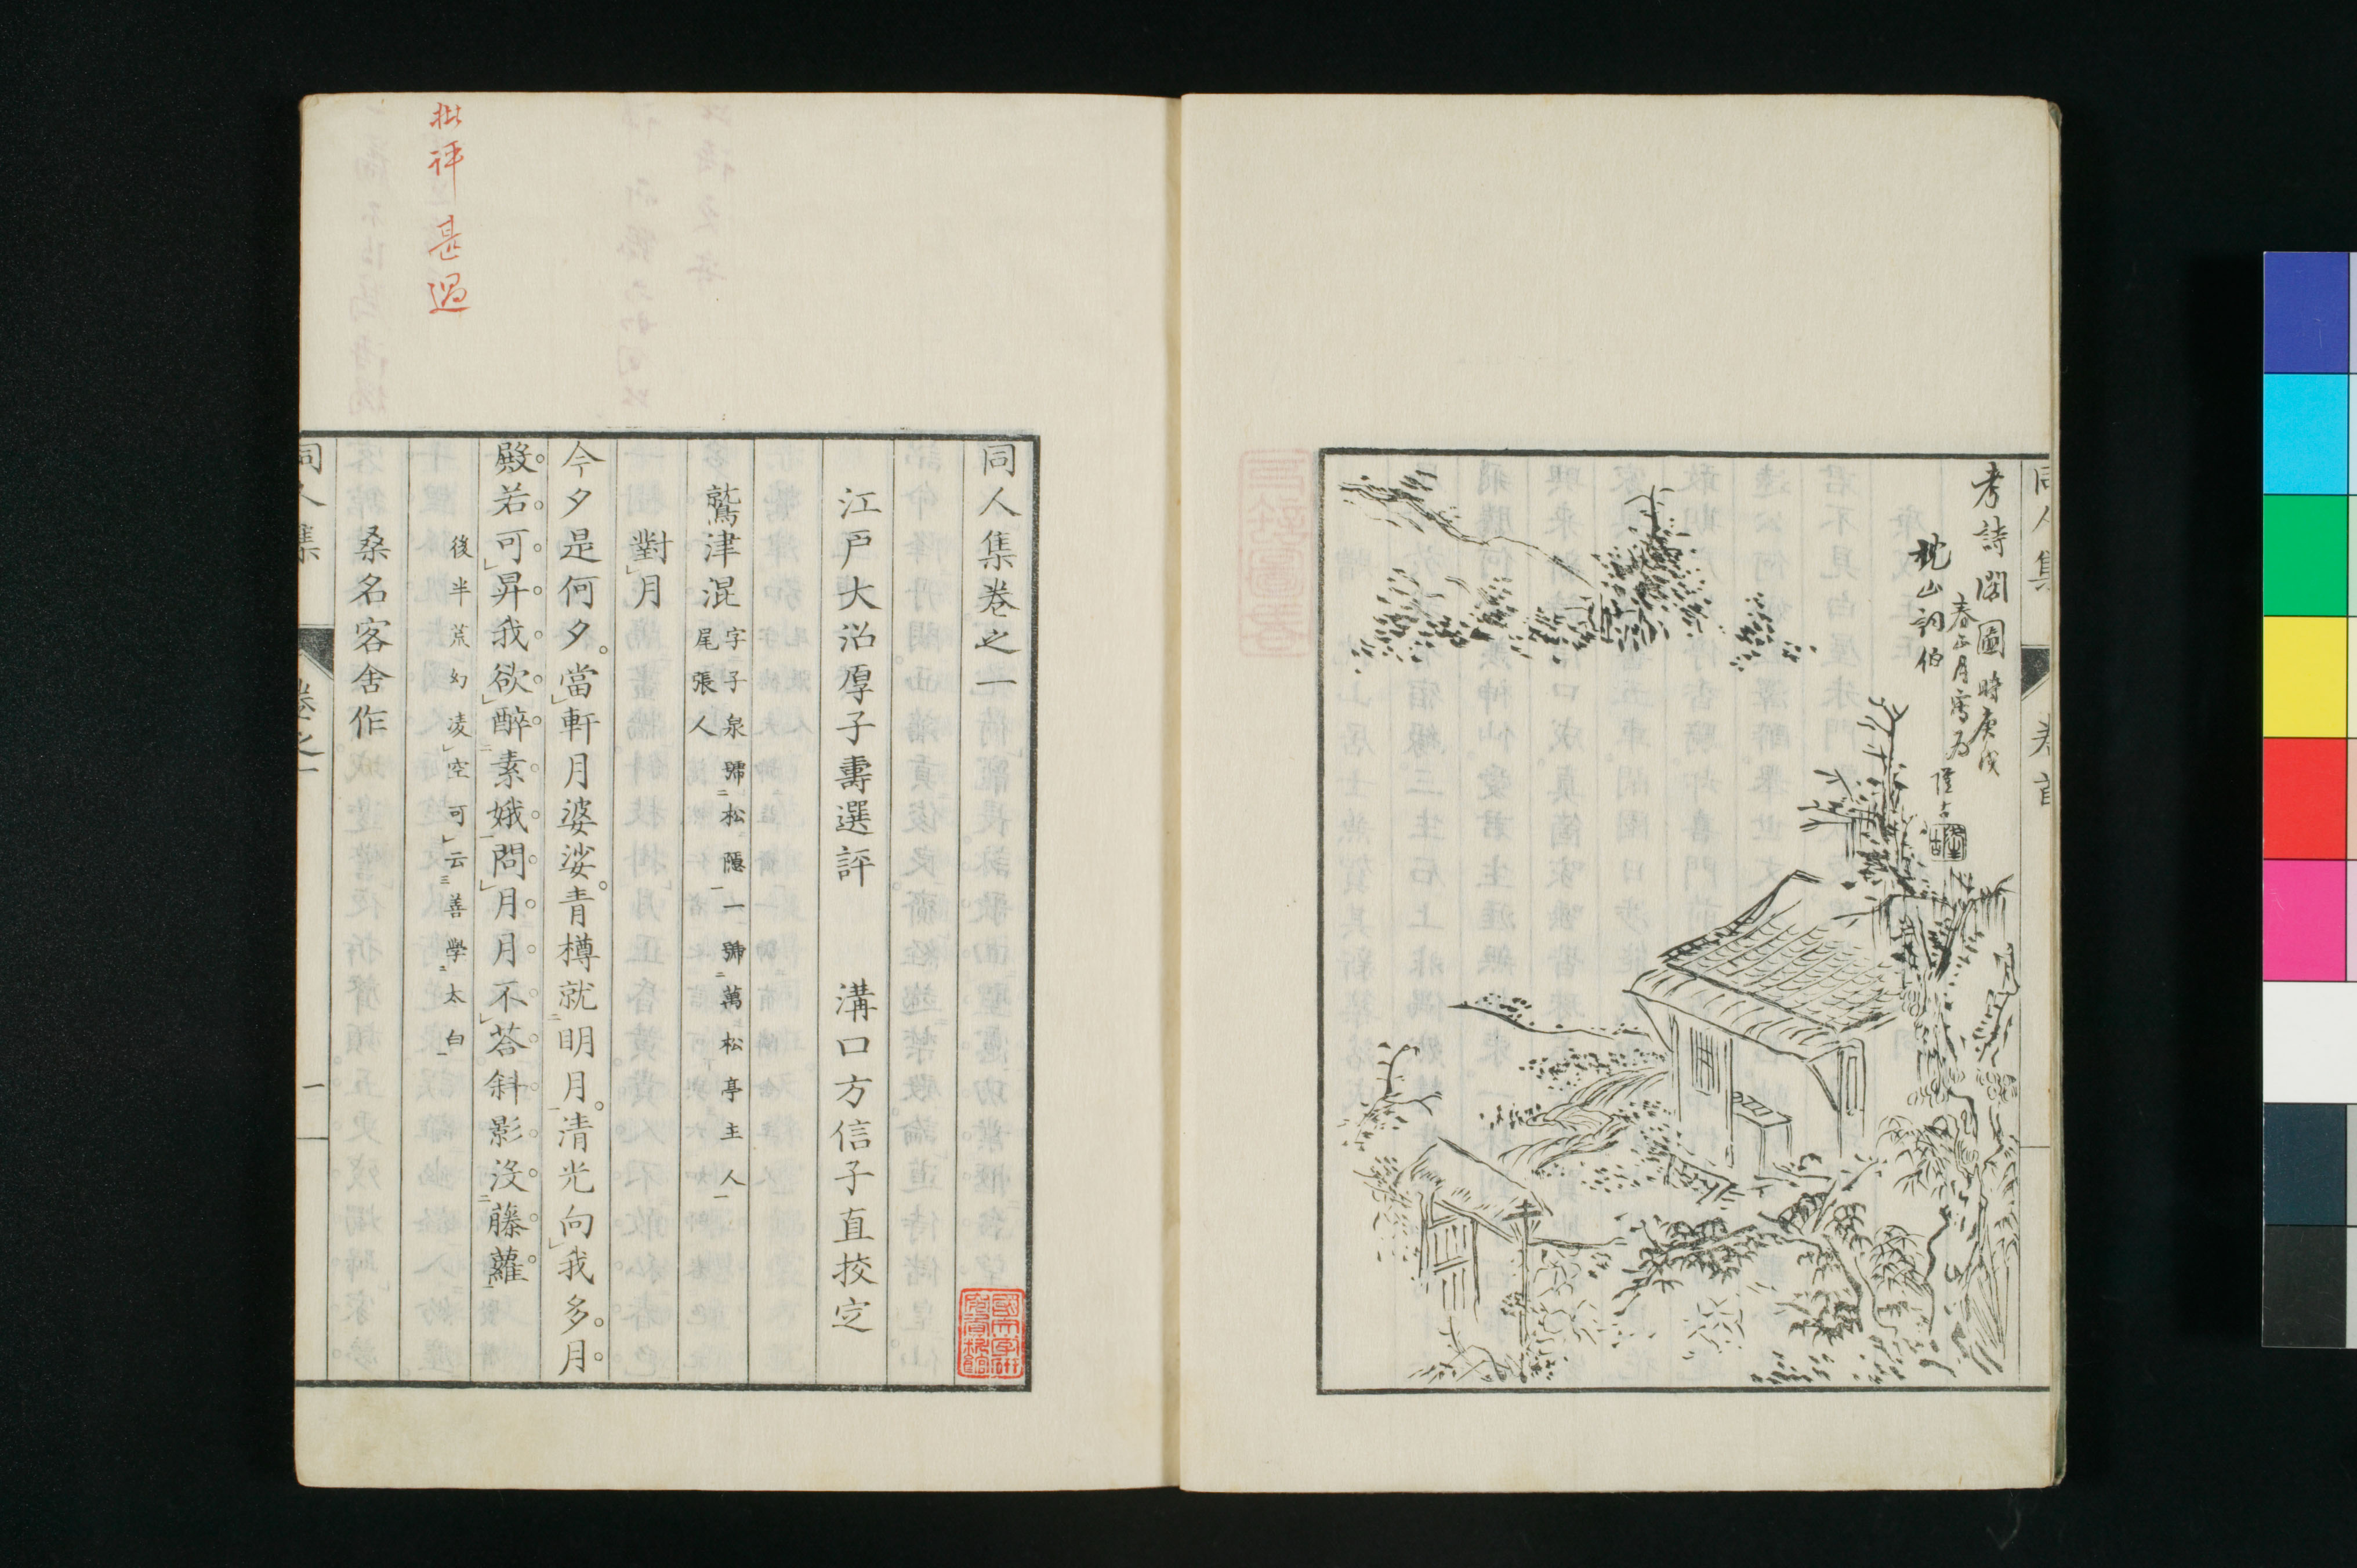 考詩閣圖時庚戌
春正月寫為
枕山詞伯
同人集
同人集卷之一
江戸大沼厚子壽選評　溝口方信子直挍定
鷲津混
字子泉號松隱一號萬松亭主人
尾張人
對月
今夕是何夕當軒月婆娑青樽就明月清光向我多月
殿若可昇我欲醉素娥問月月不荅斜影沒藤蘿
後半荒幻凌空可云善學太白
桑名客舍作
同人集
卷之一
一
批評甚過